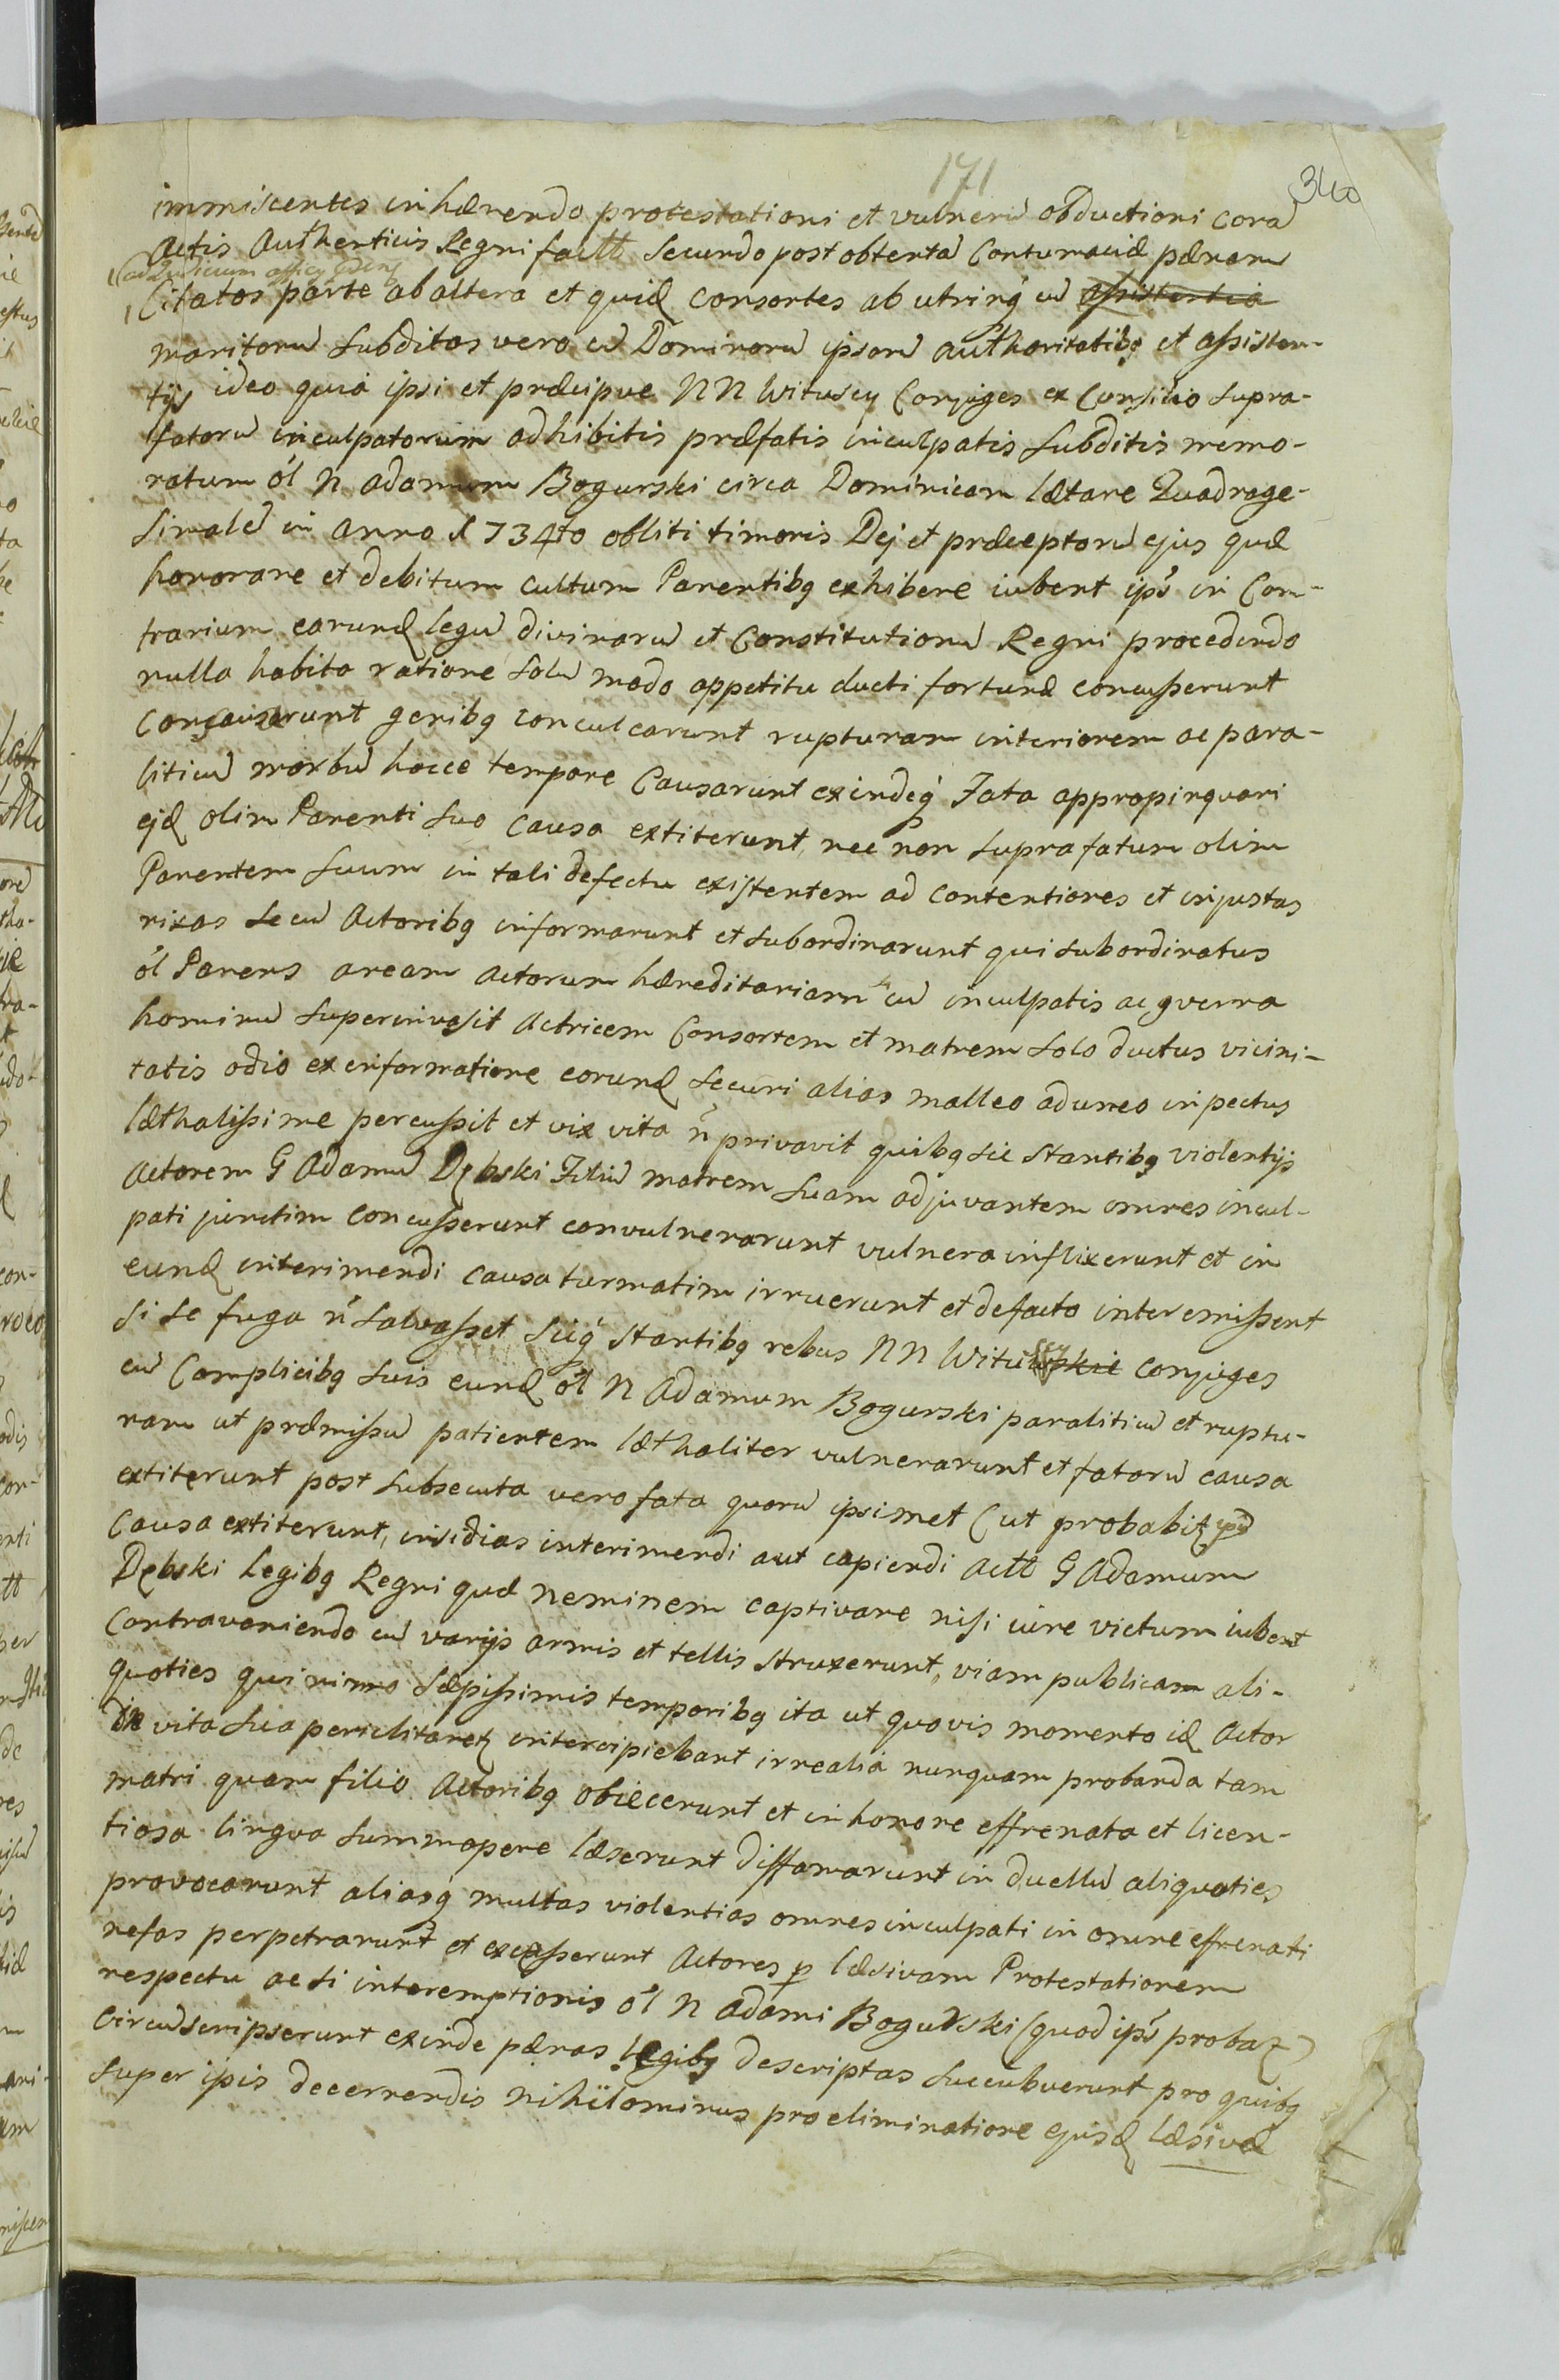 171
340
immiscentes inhærendo protestationi et vulnerũ obductioni corã
Actis Authenticis Regni factt Secundo post obtentã Contumaciæ pænam
(ad Judicium officij
Citatos parte ab altera et quid consortes ab utrinq cũ assistentia
maritorũ Subditos vero cũ Dominorũ ipsorũ authoritatibq et assisten-
tijs ideo quia ipsi et præcipue NN Wituscy Conjuges ex Consilio supra-
fatorũ inculpatorum adhibitis præfatis inculpatis Subditis memo-
ratum ol N Adamum Bogurski circa Dominicam lætare Quadrage-
simalẽ in anno 1734to obliti timoris Dej et præceptorũ ejus quæ
honorare et debitum cultum Parentibq exhibere iubent ips in Con-
trarium earund legũ divinarũ et Constitutionũ Regni procedendo
nulla habita ratione solũ modo appetitu ducti fortunæ concusserunt
genibq conculcarunt rupturam interiorem ac para-
liticũ morbũ hocce tempore Causarunt exindeq Fata appropinquari
ejd olim Parenti suo causa extiterunt, nec non suprafatum olim
Parentem Suum in tali defectu existentem ad contentiones et injustas
rixas secũ Actoribq informarunt et subordinarunt qui subordinatus
ol Parens aream actorum hæreditariam cũ inculpatis ac gverra
hominũ superinvasit Actricem Consortem et matrem solo ductus vicini-
tatis odio ex informatione eorund securi alias malleo adunco in pectus
læthalissime percussit et vix vita ñ privavit quibq sic stantibq violentijs
Actorem G Adamũ Dębski Filiũ matrem suam adjuvantem omnes incul-
pati junctim concusserunt convulnerarunt vulnera inflixerunt et in
eund interimendi causa turmatim irruerunt et defacto interemissent
si se fuga ñ salvasset sicq stantibq rebus NN Wituskie conjuges
cũ Complicibq suis eund ol N Adamum Bogurski paraliticũ et ruptu-
ram ut præmissũ patientem læthaliter vulnerarunt et fatorũ causa
extiterunt post subsecuta vero fata quorũ ipsimet (ut probabit
Causa extiterunt, insidias interimendi aut capiendi Actt G Adamum
Dębski Legibq Regni quæ neminem captivare nisi iure victum iubent
Contraveniendo cũ varijs armis et tellis struxerunt, viam publicam ali-
quoties quinimo sæpissimis temporibq ita ut quovis momento id Actor
de vita sua periclitaret intercipiebant irrealia nunquam probanda tam
matri quam filio Actoribq obiecerunt et in honore effrenata et licen-
tiosa lingva summopere læserunt diffamarunt in duellũ aliquoties
provocarunt aliasq multas violentias omnes inculpati in omne effrenati
nefas perpetrarunt et excesserunt Actores p læsivam Protestationem
respectu ac si interemptionis ol N Adami Bogurski (quod ips probat)
circũscripserunt exinde pænas legibq descriptas succubuerunt pro quibq
super ipis decernendis nihilominus pro eliminatione ejusd læsivæ